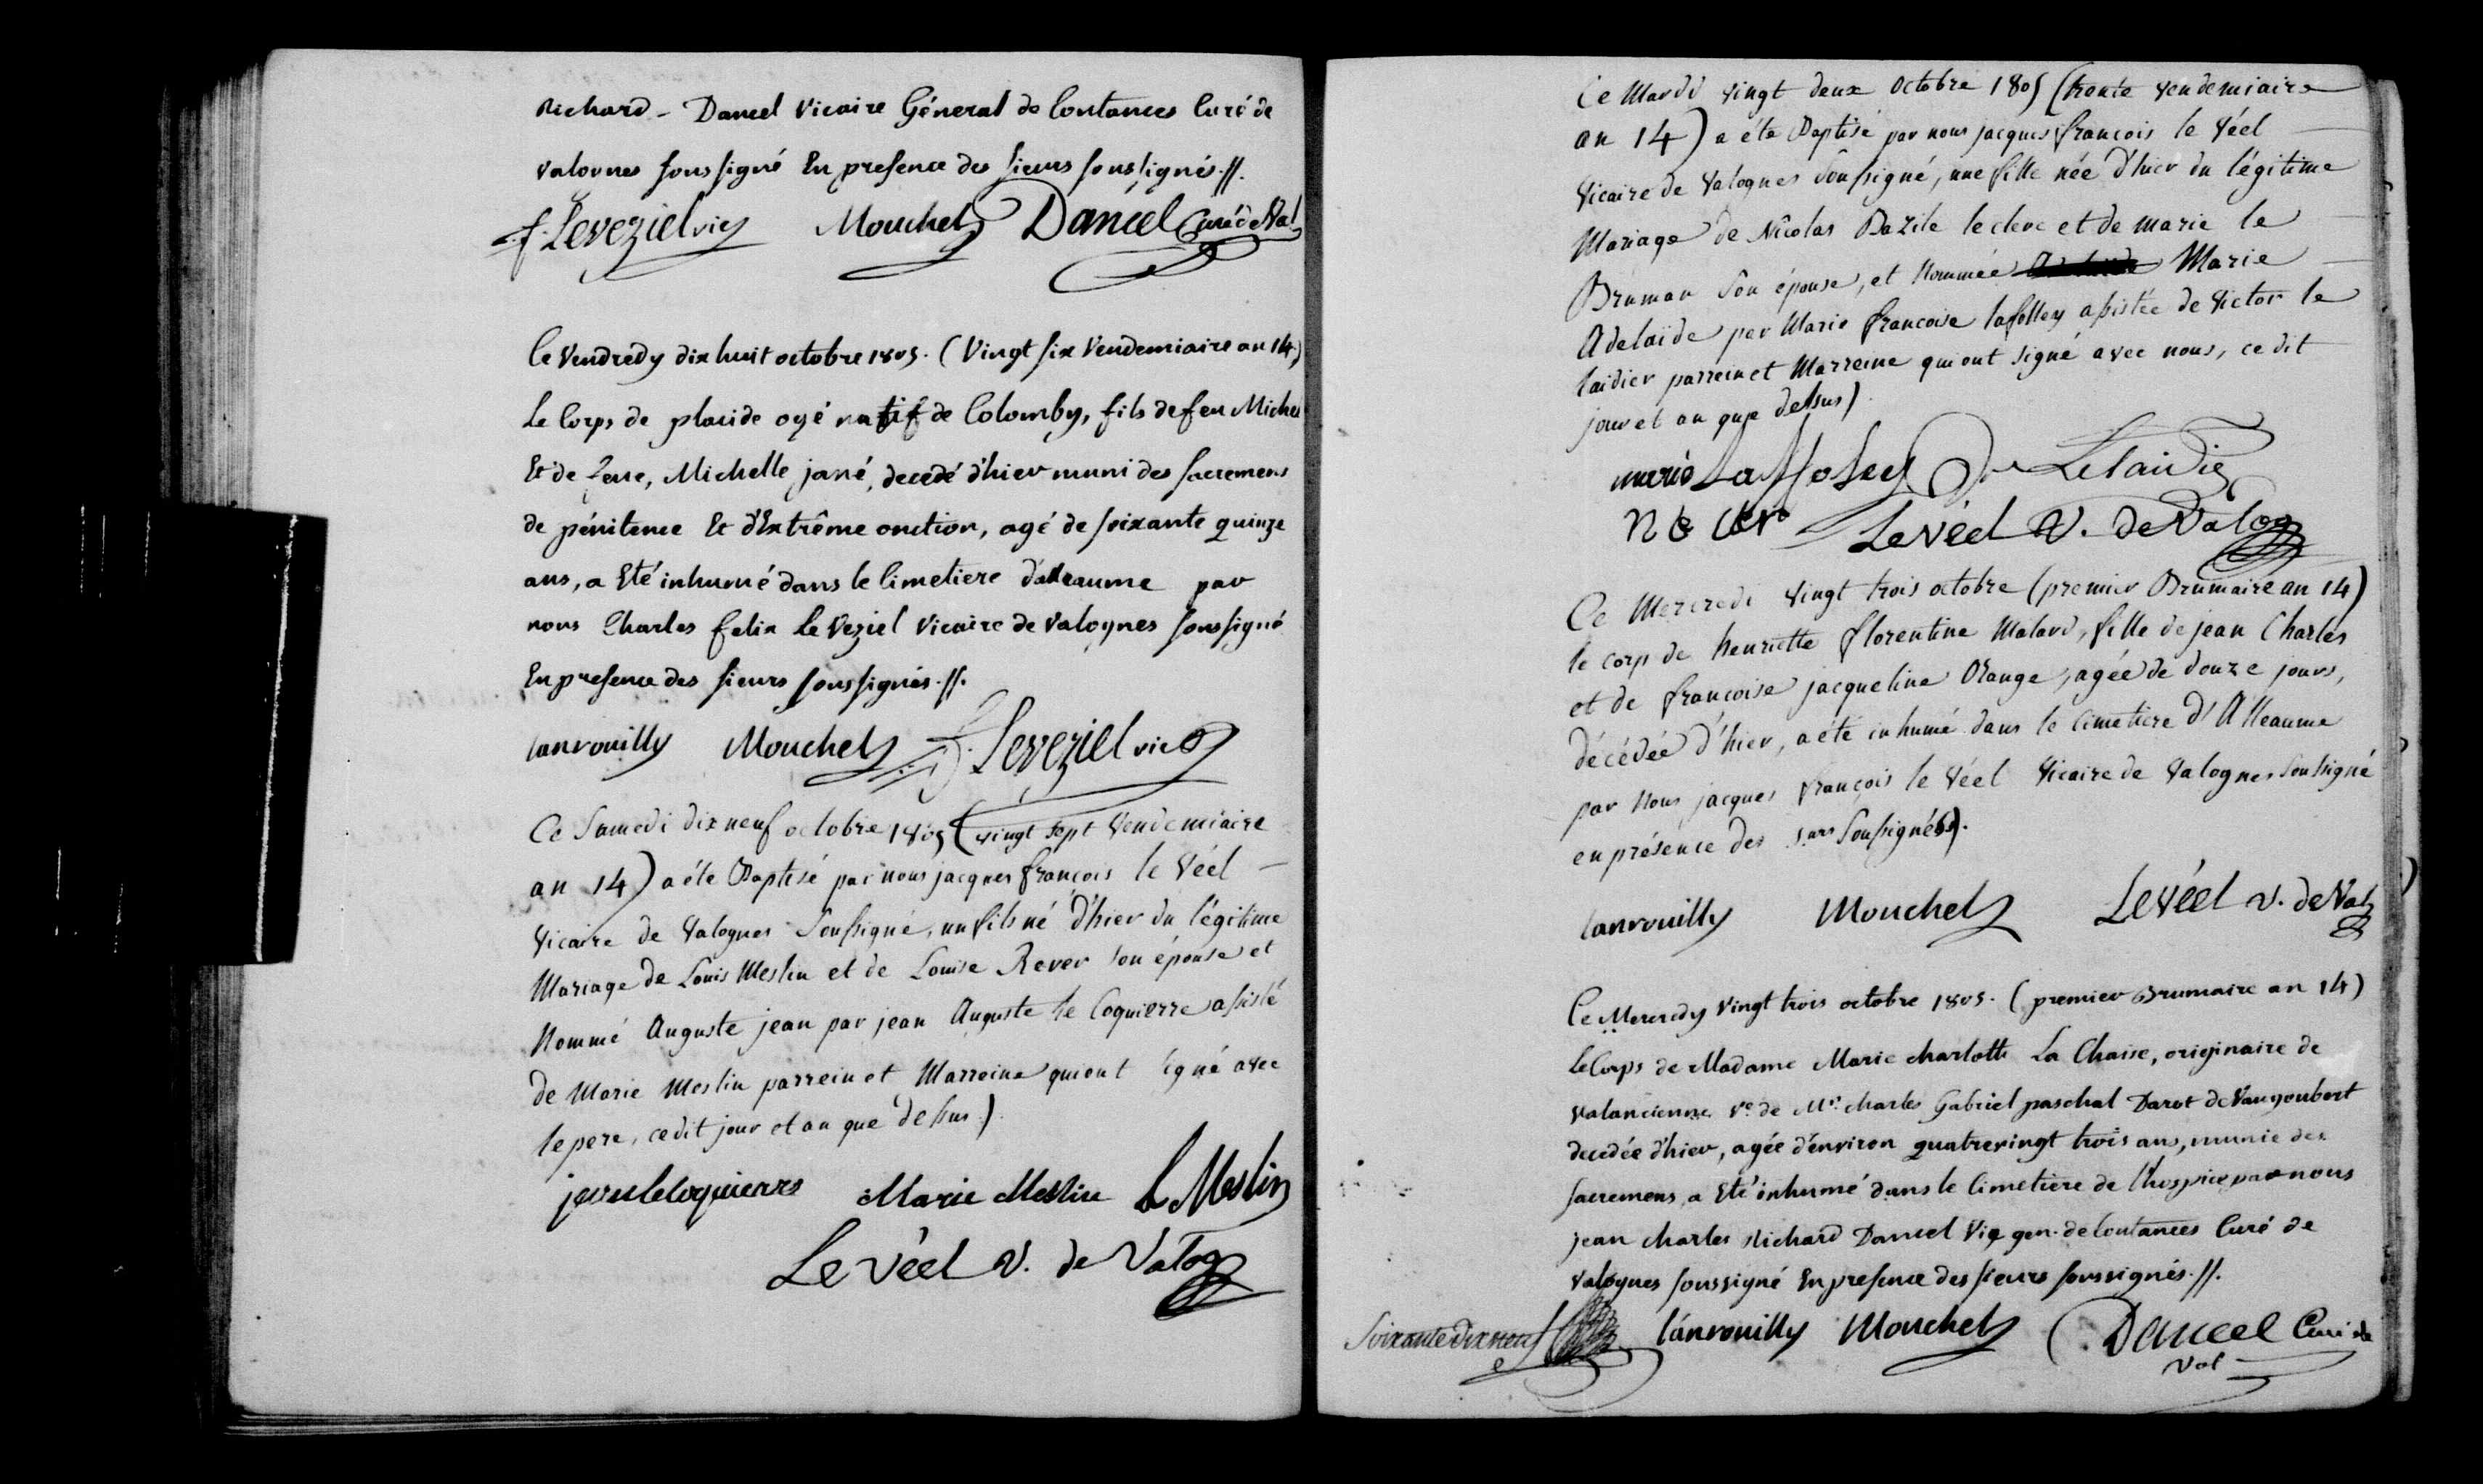 Richard - Dancel Vicaire Géneral de Coutances Curé de
valognes soussigné En presence des sieurs soussignés.//.
f. Leveziel vic Mouchel Dancel Curé de Val
Ce Vendredy dix huit octobre 1805. (Vingt six Vendemiaire an 14)
Le Corps de placide ogé natif de Colomby, fils de feu Michel
Et de feue, Michelle jané, decedé d'hier muni des sacremens
de pénitence Et d'Extrême onction, agé de soixante quinze
ans, a Eté inhumé dans le Cimetiere d'alleaume par
nous Charles felix Le Veziel Vicaire de Valognes soussigné
En presence des sieurs soussignés.//.
lanrouilly Mouchel f. Leveziel vic
Ce Samedi dix neuf octobre 1805 (vingt sept Vendemiaire
an 14) a été Baptisé par nous jacques françois le Véel
Vicaire de Valognes Soussigné, un fils né d'hier du légitime
Mariage de Louis Meslin et de Louise Rever son épouse et
Nommé Auguste jean par jean Auguste le Coquierre assisté
de Marie Meslin parrein et Marreine qui ont signé avec
le pere, ce dit jour et an que dessus).
jean lecoquierre Marie Meslin L Meslin
Le Véel V. de Valog
Ce Mardi vingt deux Octobre 1805 (trente vendemiaire
an 14) a été Baptisé par nous jacques françois le Véel
Vicaire de Valognes Soussigné, une fille née d'hier du légitime
Mariage de Nicolas Bazile leclerc et de marie le
Bruman Son épouse, et Nommée Marie
Adelaïde par Marie francoise lafolley assistée de Victor le
laidier parrein et Marreine qui ont signé avec nous, ce dit
jour et an que dessus).
marie Laffoley Le laidie
Le Véel V. de Valog
Ce Mercredi vingt trois octobre (premier Brumaire an 14)
le corp de henriette florentine Malard, fille de jean Charles
et de françoise jacqueline Orange, agée de douze jours,
décédée d'hier, a été inhumé dans le cimetiere d'Alleaume
par Nous jacques françois le Véel Vicaire de Valognes Soussigné
en présence des Surs Soussignés).
lanrouilly Mouchel Le Véel V. de Val
Ce Mercredy Vingt trois octobre 1805. (premier Brumaire an 14)
Le Corps de Madame Marie charlotte La Chaise, originaire de
valancienne Ve. de Mr. charles Gabriel paschal Darot de Vaugoubert
decedée d'hier, agée d'environ quatrevingt trois ans, munie des
sacremens, a Eté inhumé dans le Cimetiere de l'hospice par nous
jean charles Richard Dancel Vic gen. de Coutances Curé de
valognes soussigné En presence des sieurs soussignés.//.
Soixante dix neuf lanrouilly Mouchel Dancel Curé de
Val